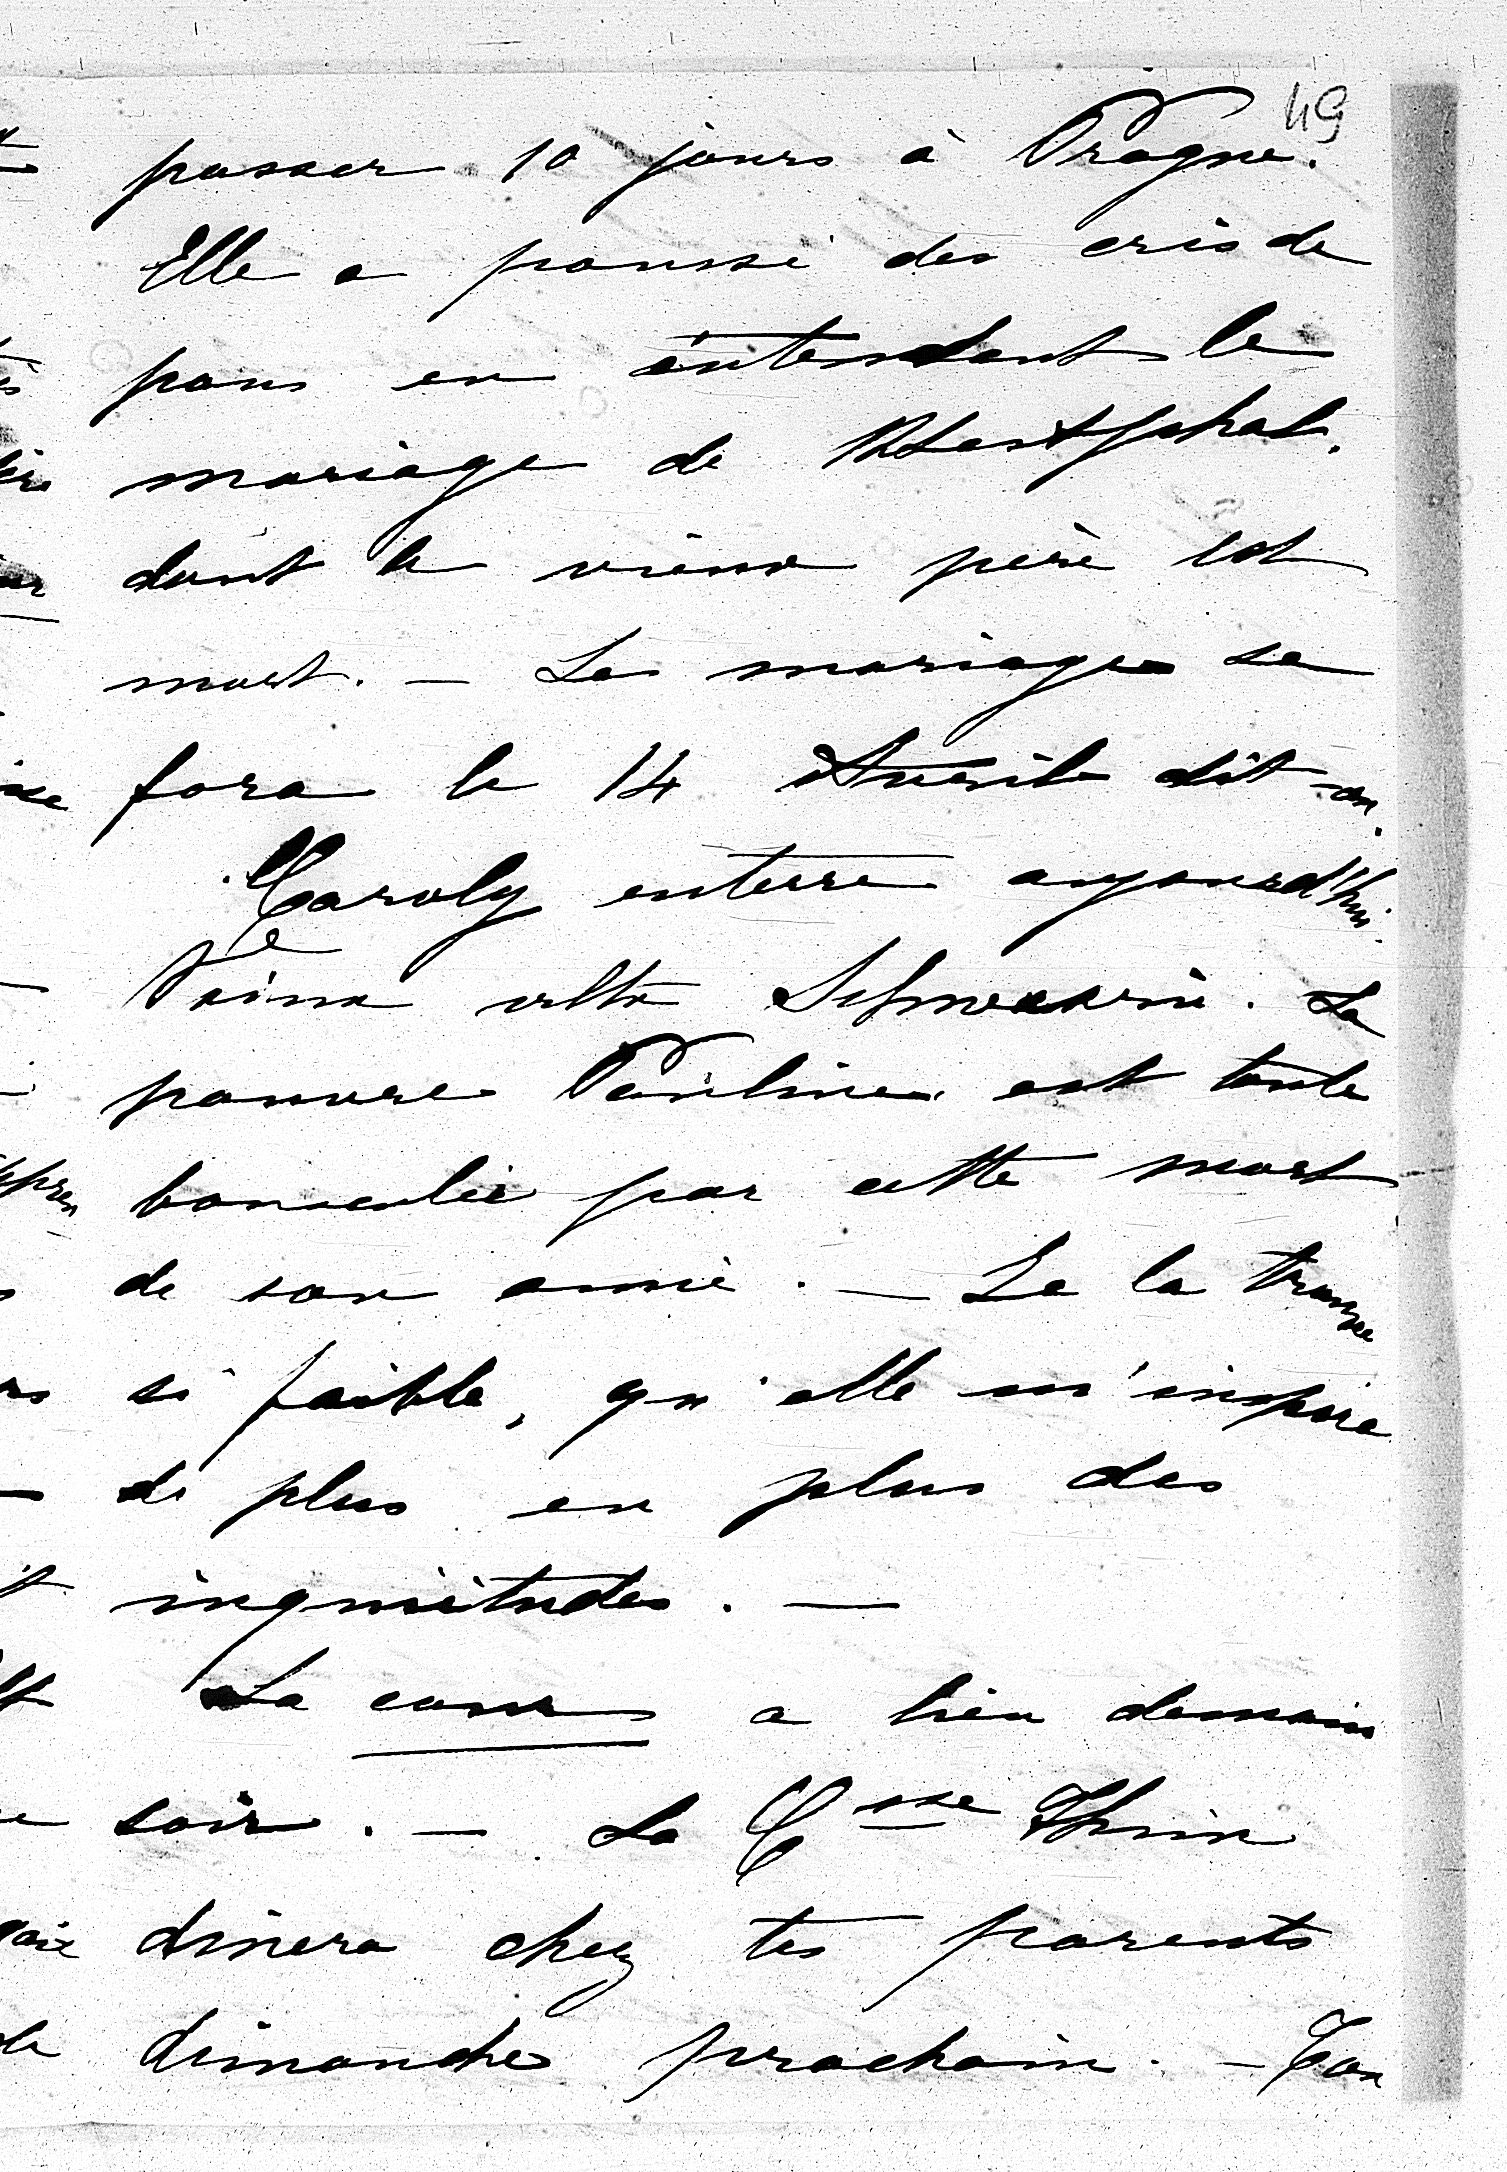 49
passer 10 jours à Prague.
Elle a poussé des cris de
paon en entendant le
mariage de Westphal.
dont le vieux père est
mort. – Le mariage se
fera le 14 Avril dit-on.
Caroly enterre aujourd'hui
cette La
pauvre Pauline est toute
bousculée par cette mort
de son amie. – Je la trouve
si faible, qu'elle m'inspire
de plus en plus des
inquiétudes. –
La cour a lieu demain
soir. – La Csse Thun
dinera chez tes parents
dimanche prochain. – Ton